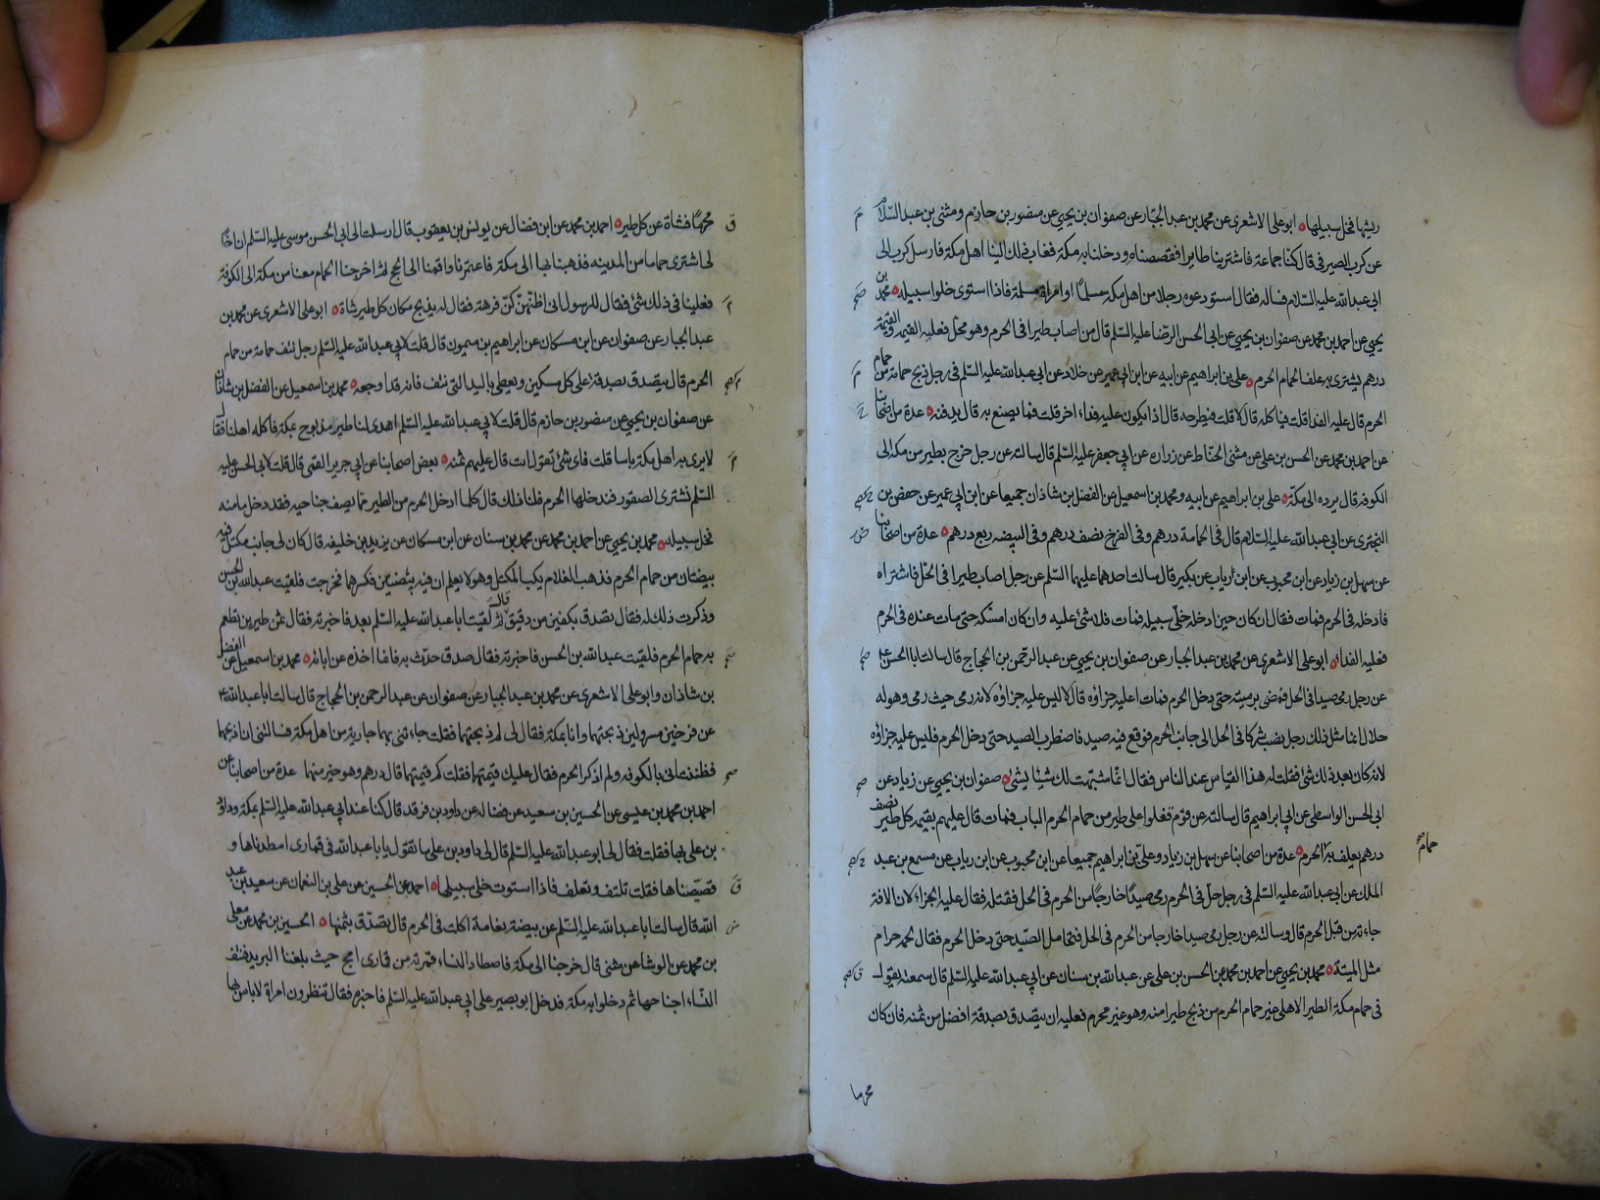 ريشها فخل سبيلها ه ابو على الاشعرى عن محمد بن عبد الجبار عن صفوان بن يحيى عن منصور بن حازم ومثنى بن عبد السلام
عن كرب الصيرفى قال كنا جماعة فاشترينا طايرا فقصصناه ودخلنا به مكة فعاب ذلك الينا اهل مكة فارسل كرب الى
ابى عبد الله عليه السلام فساله فقال استودعوه رجلا من اهل مكة مسلما او امراة مسلمة فاذا استوى خلوا سبيله ه محمد بن
يحيى عن احمد بن محمد عن صفوان بن يحيى عن ابى الحسن الرضا عليه السلم قال من اصاب طيرا فى الحرم وهو محل فعليه القيمة والقيمة
درهم يشترى به علفا لحمام الحرم ه على بن ابراهيم عن ابيه عن ابن ابى عمير عن خلاد عن ابى عبد الله عليه السلم فى رجل ذبح حمامة من حمام
الحرم قال عليه الفدا قلت فياكله قال لا قلت فيطرحه قال اذا يكون عليه فداء اخر قلت فما يصنع به قال يدفنه ه عدة من اصحابنا
عن احمد بن محمد عن الحسن بن على عن مثنى الحناط عن زراره عن ابى جعفر عليه السلم قال سالته عن رجل خرج بطير من مكة الى
الكوفه قال يرده الى مكة ه على بن ابراهيم عن ابيه ومحمد بن اسمعيل عن الفضل بن شاذان جميعا عن ابن ابى عمير عن حفص بن
البخترى عن ابى عبد الله عليه السلام قال فى الحمامة درهم وفى الفرخ نصف درهم وفى البيضه ربع درهم ه عدة من اصحابنا
عن سهل بن زياد عن ابن محبوب عن ابن رياب عن بكير قال سالت احدهما عليهما السلم عن رجل اصاب طيرا فى الحل فاشتراه
فادخله فى الحرم فمات فقال ان كان حين ادخله خلى سبيله فمات فلا شئ عليه وان كان امسكه حتى مات عنده فى الحرم
فعليه الفداء ه ابو على الاشعرى عن محمد بن عبد الجبار عن صفوان بن يحيى عن عبد الرحمن بن الحجاج قال سالت ابا الحسن ع
عن رجل رمى صيدا فى الحل فمضى برميته حتى دخل الحرم فمات اعليه جزاؤه قال لا ليس عليه جزاؤه لانه رمى حيث رمى وهو له
حلال انما مثل ذلك رجل نصب شركا فى الحل الى جانب الحرم فوقع فيه صيد فاضطرب الصيد حتى دخل الحرم فليس عليه جزاؤه
لانه كان بعد ذلك شئ فقلت له هذا القياس عند الناس فقال انما شبهت لك شيئا بشئ ه صفوان بن يحيى عن زياد عن
ابى الحسن الواسطى عن ابى ابراهيم قال سالته عن قوم قفلوا على طير من حمام الحرم الباب فمات قال عليهم بقيمة كل طير نصف
درهم يعلف به الحرم ه عدة من اصحابنا عن سهل بن زياد وعلى بن ابراهيم جميعا عن ابن محبوب عن ابن رياب عن مسمع بن عبد
حمام
الملك عن ابى عبد الله عليه السلم فى رجل حل فى الحرم رمى صيدا خارجا من الحرم فى الحل فقتله فقال عليه الجزاء لان الافة
جاءته من قبل الحرم قال وسالته عن رجل رمى صيدا خارجا من الحرم فى الحل فتحامل الصيد حتى دخل الحرم فقال لحمه حرام
مثل الميتة ه محمد بن يحيى عن احمد بن محمد عن الحسن بن على عن عبد الله بن سنان عن ابى عبد الله عليه السلم قال سمعته يقول
فى حمام مكة الطير الاهلى غير حمام الحرم من ذبح طيرا منه وهو غير محرم فعليه ان يتصدق بصدقة افضل من ثمنه فان كان
محرما
محرما فشاة عن كل طير ه احمد بن محمد عن ابن فضال عن يونس بن يعقوب قال ارسلت الى ابى الحسن موسى عليه السلم ان اخا
لى اشترى حماما من المدينه فذهبنا بها الى مكة فاعتمرنا واقمنا الى الحج ثم اخرجنا الحمام معنا من مكة الى الكوفة
فعلينا فى ذلك شئ فقال للرسول انى اظنهن كن فرهة فقال له يذبح مكان كل طير شاة ه ابو على الاشعرى عن محمد بن
عبد الجبار عن صفوان عن ابن مسكان عن ابراهيم بن ميمون قال قلت لابى عبد الله عليه السلم رجل نتف حمامة من حمام
الحرم قال يتصدق بصدقة على كل مسكين ويعطى باليد التى نتف فانه قد اوجعه ه محمد بن اسمعيل عن الفضل بن شاذان
عن صفوان بن يحيى عن منصور بن حازم قال قلت لابى عبد الله عليه السلم اهدى لنا طير مذبوح بمكة فاكله اهلنا فقال
لا يرى به اهل مكة باسا قلت فاى شئ تقول انت قال عليهم ثمنه ه بعض اصحابنا عن ابى جرير القمى قال قلت لابى الحسن عليه
السلم نشترى الصقور فندخلها الحرم فلنا ذلك قال كلما ادخل الحرم من الطير مما يصف جناحيه فقد دخل مامنه
فخل سبيله ه محمد بن يحيى عن احمد بن محمد عن محمد بن سنان عن ابن مسكان عن يزيد بن خليفه قال كان لى جانب مكتل فيه
بيضتان من حمام الحرم فذهب الغلام يكب المكتل وهو لا يعلم ان فيه بيضتين فكسرهما فخرجت فلقيت عبد الله بن الحسن
وذكرت ذلك له فقال تصدق بكفين من دقيق قال ثم لقيت ابا عبد الله عليه السلم بعد فاخبرته فقال ثمن طيرين تطعم
به حمام الحرم فلقيت عبد الله بن الحسن فاخبرته فقال صدق حدث به فانما اخذه عن ابائه ه محمد بن اسمعيل عن الفضل
بن شاذان وابو على الاشعرى عن محمد بن عبد الجبار عن صفوان عن عبد الرحمن بن الحجاج قال سالت ابا عبد الله ع
عن فرخين مسرولين ذبحتهما وانا بمكة فقال لى لم ذبحتهما فقلت جاءتنى بهما جارية من اهل مكة فسالتنى ان اذبحهما
فظننت انى بالكوفه ولم اذكر الحرم فقال عليك قيمتهما فقلت كم قيمتهما قال درهم وهو خير منهما عدة من اصحابنا عن
احمد بن محمد بن عيسى عن الحسين بن سعيد عن فضاله عن داود بن فرقد قال كنا عند ابى عبد الله عليه السلم بمكة وداود
بن على بها فقلت فقال لى ابو عبد الله عليه السلم قال لى داود بن على ما تقول يا ابا عبد الله فى قمارى اصطدناها و
قصصناها فقلت تنتف وتعلف فاذا استوت خلى سبيلها ه احمد عن الحسين عن على بن النعمان عن سعيد بن عبد
الله قال سالت ابا عبد الله عليه السلم عن بيضة نعامة اكلت فى الحرم قال تصدق بثمنها ه الحسين بن محمد عن معلى
بن محمد عن الوشا عن مثنى قال خرجنا الى مكة فاصطاد النساء قمرية من قمارى امج حيث بلغنا البريد فنتف
النساء اجناحها ثم دخلوا به مكة فدخل ابو بصير على ابى عبد الله عليه السلم فاخبره فقال تنظرون امراة لا باس بها